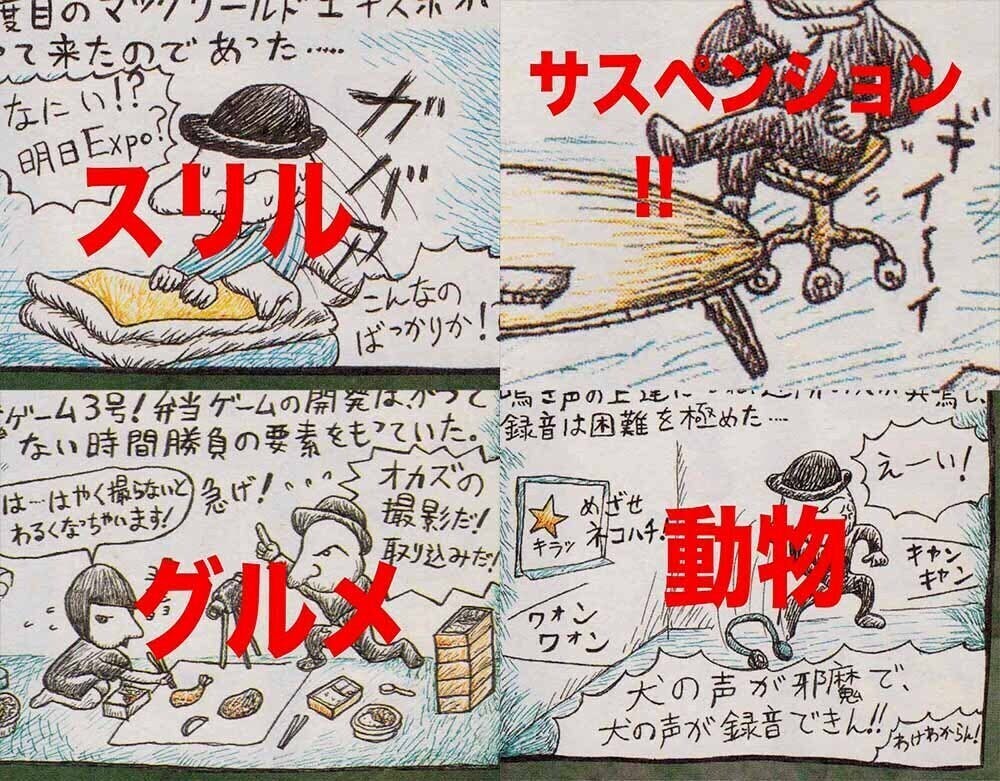 度目のマックワールドエキスポが
って来たのであった……
なにい!?
明日Expo?
ガバッ
スリル
こんなの
ばっかりか!
サスペンション
!!
ギイーィ
ゲーム3号!弁当ゲームの開発は、かつて
ない時間勝負の要素をもっていた。
は…はやく撮らないと
わるくなっちゃいます!
急げ!
オカズの
撮影だ!
取り込みだ!
グルメ
録音は困難を極めた…
えーい!
めざせ
ネコハチ!
キラッ
動物
キャン
キャン
ワォン
ワォン
犬の声が邪魔で、
犬の声が録音できん!!
わけわからん!